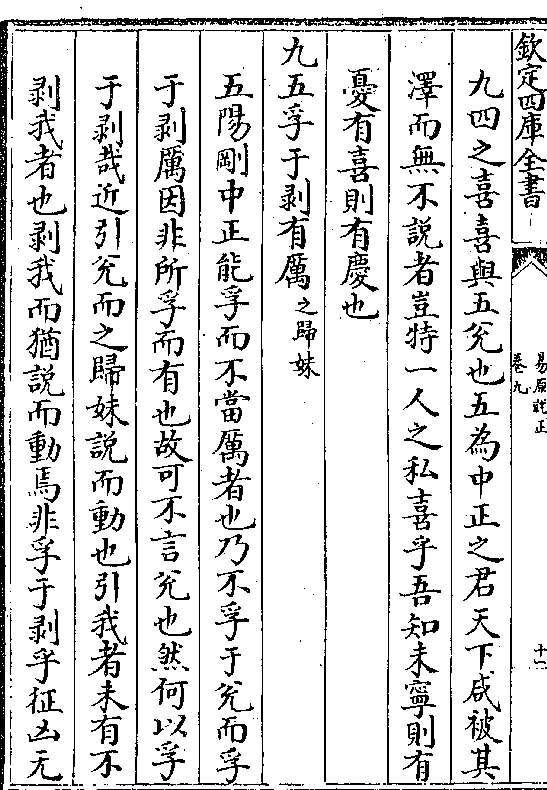 欽定四庫全書
易原就正
卷九
十二
九四之喜喜與五兌也五為中正之君天下咸被其
澤而無不說者豈特一人之私喜乎吾知未寧則有
憂有喜則有慶也
九五孚于剥有厲之歸妹
五陽剛中正能孚而不當厲者也乃不孚于兌而孚
于剥厲因非所孚而有也故可不言兌也然何以孚
于剥哉近引兌而之歸妹說而動也引我者未有不
剥我者也剥我而猶說而動焉非孚于剥乎征凶无